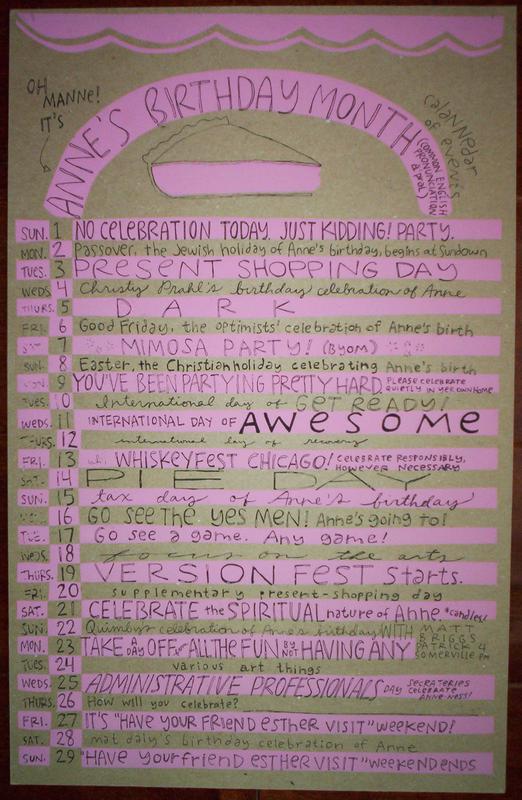 OH MANNE! IT'S
ANNE'S BIRTHDAY MONTH
calannedar of events
(COMMON ENGLISH PRONUNCIATION
SUN. 1 NO CELEBRATION TODAY. JUST KIDDING! PARTY.
MON. 2 Passover, the Jewish holiday of Anne's birthday, begins at Sundown
TUES. 3 PRESENT SHOPPING DAY
WEDS. 4 Christy Prahl's birthday celebration of Anne
THURS. 5 DARK
FRI. 6 Good Friday, the optimists' celebration of Anne's birth
SAT. 7 MIMOSA PARTY! (BYOM)
SUN. 8 Easter, the Christian holiday celebrating Anne's birth
MON. 9 YOU'VE BEEN PARTYING PRETTY HARD. PLEASE CELEBRATE QUIETLY IN YER OWN HOME
TUES. 10 International day of GET READY!
WEDS. 11 INTERNATIONAL DAY OF AWESOME
THURS. 12 international day of recovery
FRI. 13 uh, WHISKEYFEST CHICAGO! CELEBRATE RESPONSIBLY, HOWEVER NECESSARY
SAT. 14 PIE DAY
SUN. 15 tax day of Anne's birthday
16 GO SEE THE YES MEN! Anne's going to!
TUE. 17 Go see a game. Any game!
WEDS. 18 focus on the arts
THURS. 19 VERSION FEST starts.
FRI. 20 supplementary present-shopping day
SAT. 21 CELEBRATE the SPIRITUAL nature of Anne *candles!
SUN. 22 Quimby's celebration of Anne's birthday WITH MATT BRIGGS PATRICK SOMERVILLE 4 PM
MON. 23 TAKE the DAY OFF for ALL THE FUN BY NOT HAVING ANY
TUES. 24 various art things
WEDS. 25 ADMINISTRATIVE PROFESSIONALS DAY SECRETERIES CELEBRATE ANNE-NESS!
THURS. 26 How will you celebrate?
FRI. 27 IT'S "HAVE YOUR FRIEND ESTHER VISIT" WEEKEND!
SAT. 28 mat daly's birthday celebration of Anne
SUN. 29 "HAVE your friend ESTHER VISIT" WEEKEND ENDS